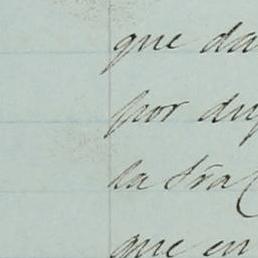 que da
por du
la Sra
que en